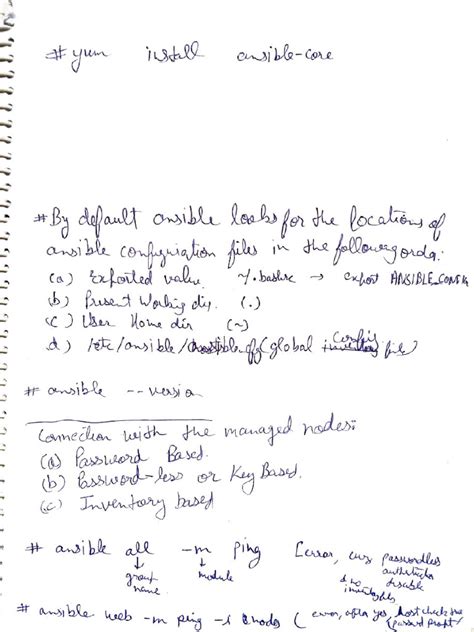 # yum install ansible-core
# By default ansible looks for the locations of
ansible configuration files in the following order.
(a) Exported value. ~/.bashrc → export ANSIBLE_CONFIG
(b) Present Working dir. (.)
(c) User Home dir (~)
d) /etc/ansible/ansible.cfg (global config file)
# ansible --version
Connection with the managed nodes:
(a) Password Based.
(b) Password-less or Key Based.
(c) Inventory based
# ansible all -m ping [error, cuz passwordless
↓ ↓ authentication
group module & no disable
name.
# ansible web -m ping -i nodes ( error, after yes, host check the